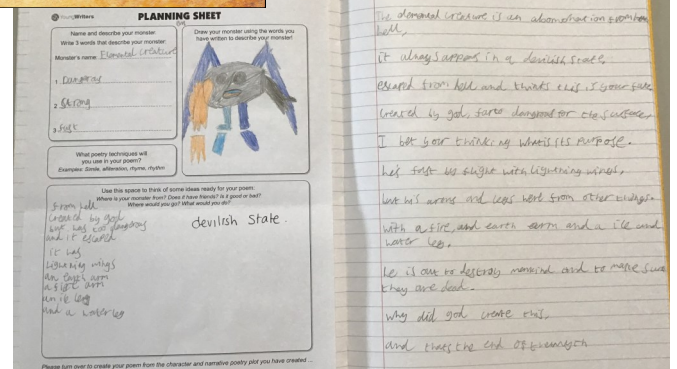 YoungWriters
PLANNING SHEET
Name and describe your monster:
Write 3 words that describe your monster:
Monster's name: Elemental creature
1 Dangrous
2 Strong
3 fust
Draw your monster using the words you
have written to describe your monster!
What poetry techniques will
you use in your poem?
Examples: Simile, alliteration, rhyme, rhythm
Use this space to think of some ideas ready for your poem:
Where is your monster from? Does it have friends? Is it good or bad?
Where would you go? What would you do?
from hell
created by god
but was too dangrous
and it escaped
it has
Lightning wings
an earth arm
a fire arm
an ice leg
and a water leg
devilish State.
Please turn over to create your poem from the character and narrative poetry plot you have created ...
The elemental creature is an abomination from
hell,
it always appears in a devilish state,
escaped from hell and thinks this is your fate
created by god, far to dangrous for the surface,
I bet your thinking what is its purpose.
he's fast by flight with lightning wings,
but his arms and legs were from other things.
with a fire, and earth arm and a ice and
water leg.
he is out to destroy mankind and to make sure
they are dead.
why did god create this,
and thats the end of the myth